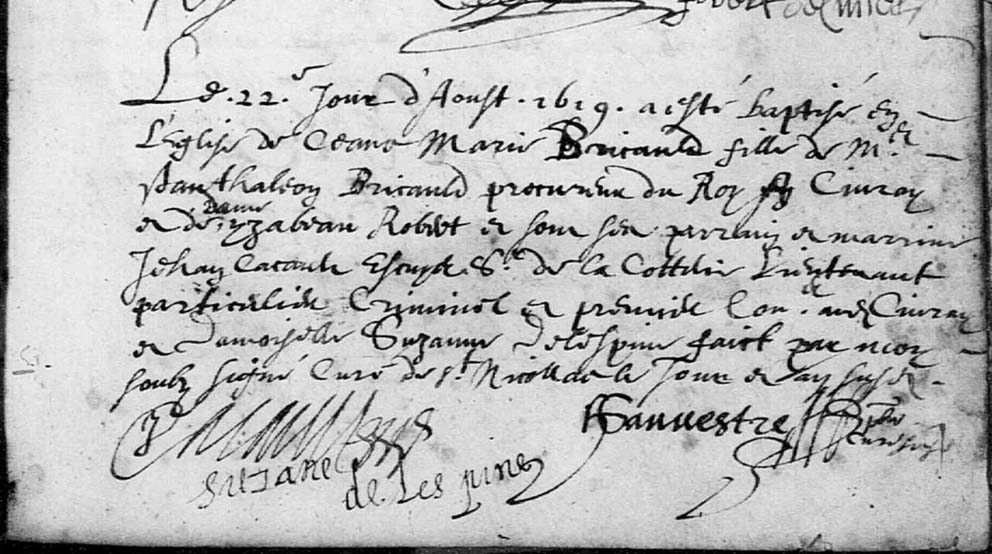 Le .22.e Jour d'Aoust .1619. a esté baptisé en
L'Eglise de Ceans Marie Bricauld fille de Mr
Panthaleon Bricauld procureur du Roy a Civray
et de Dame yzabeau Robert et sont ses parrain et marrine
Jehan Cacault Escuyer Sr de la Cottelie Lieutenant
particulier Criminel et premier Con.er aud Civray
et Damoiselle Suzanne Delespine faict par moy
soubz signé Curé de st Nicollas le Jour et an susd
Suzane
de Les pine
Sauvestre